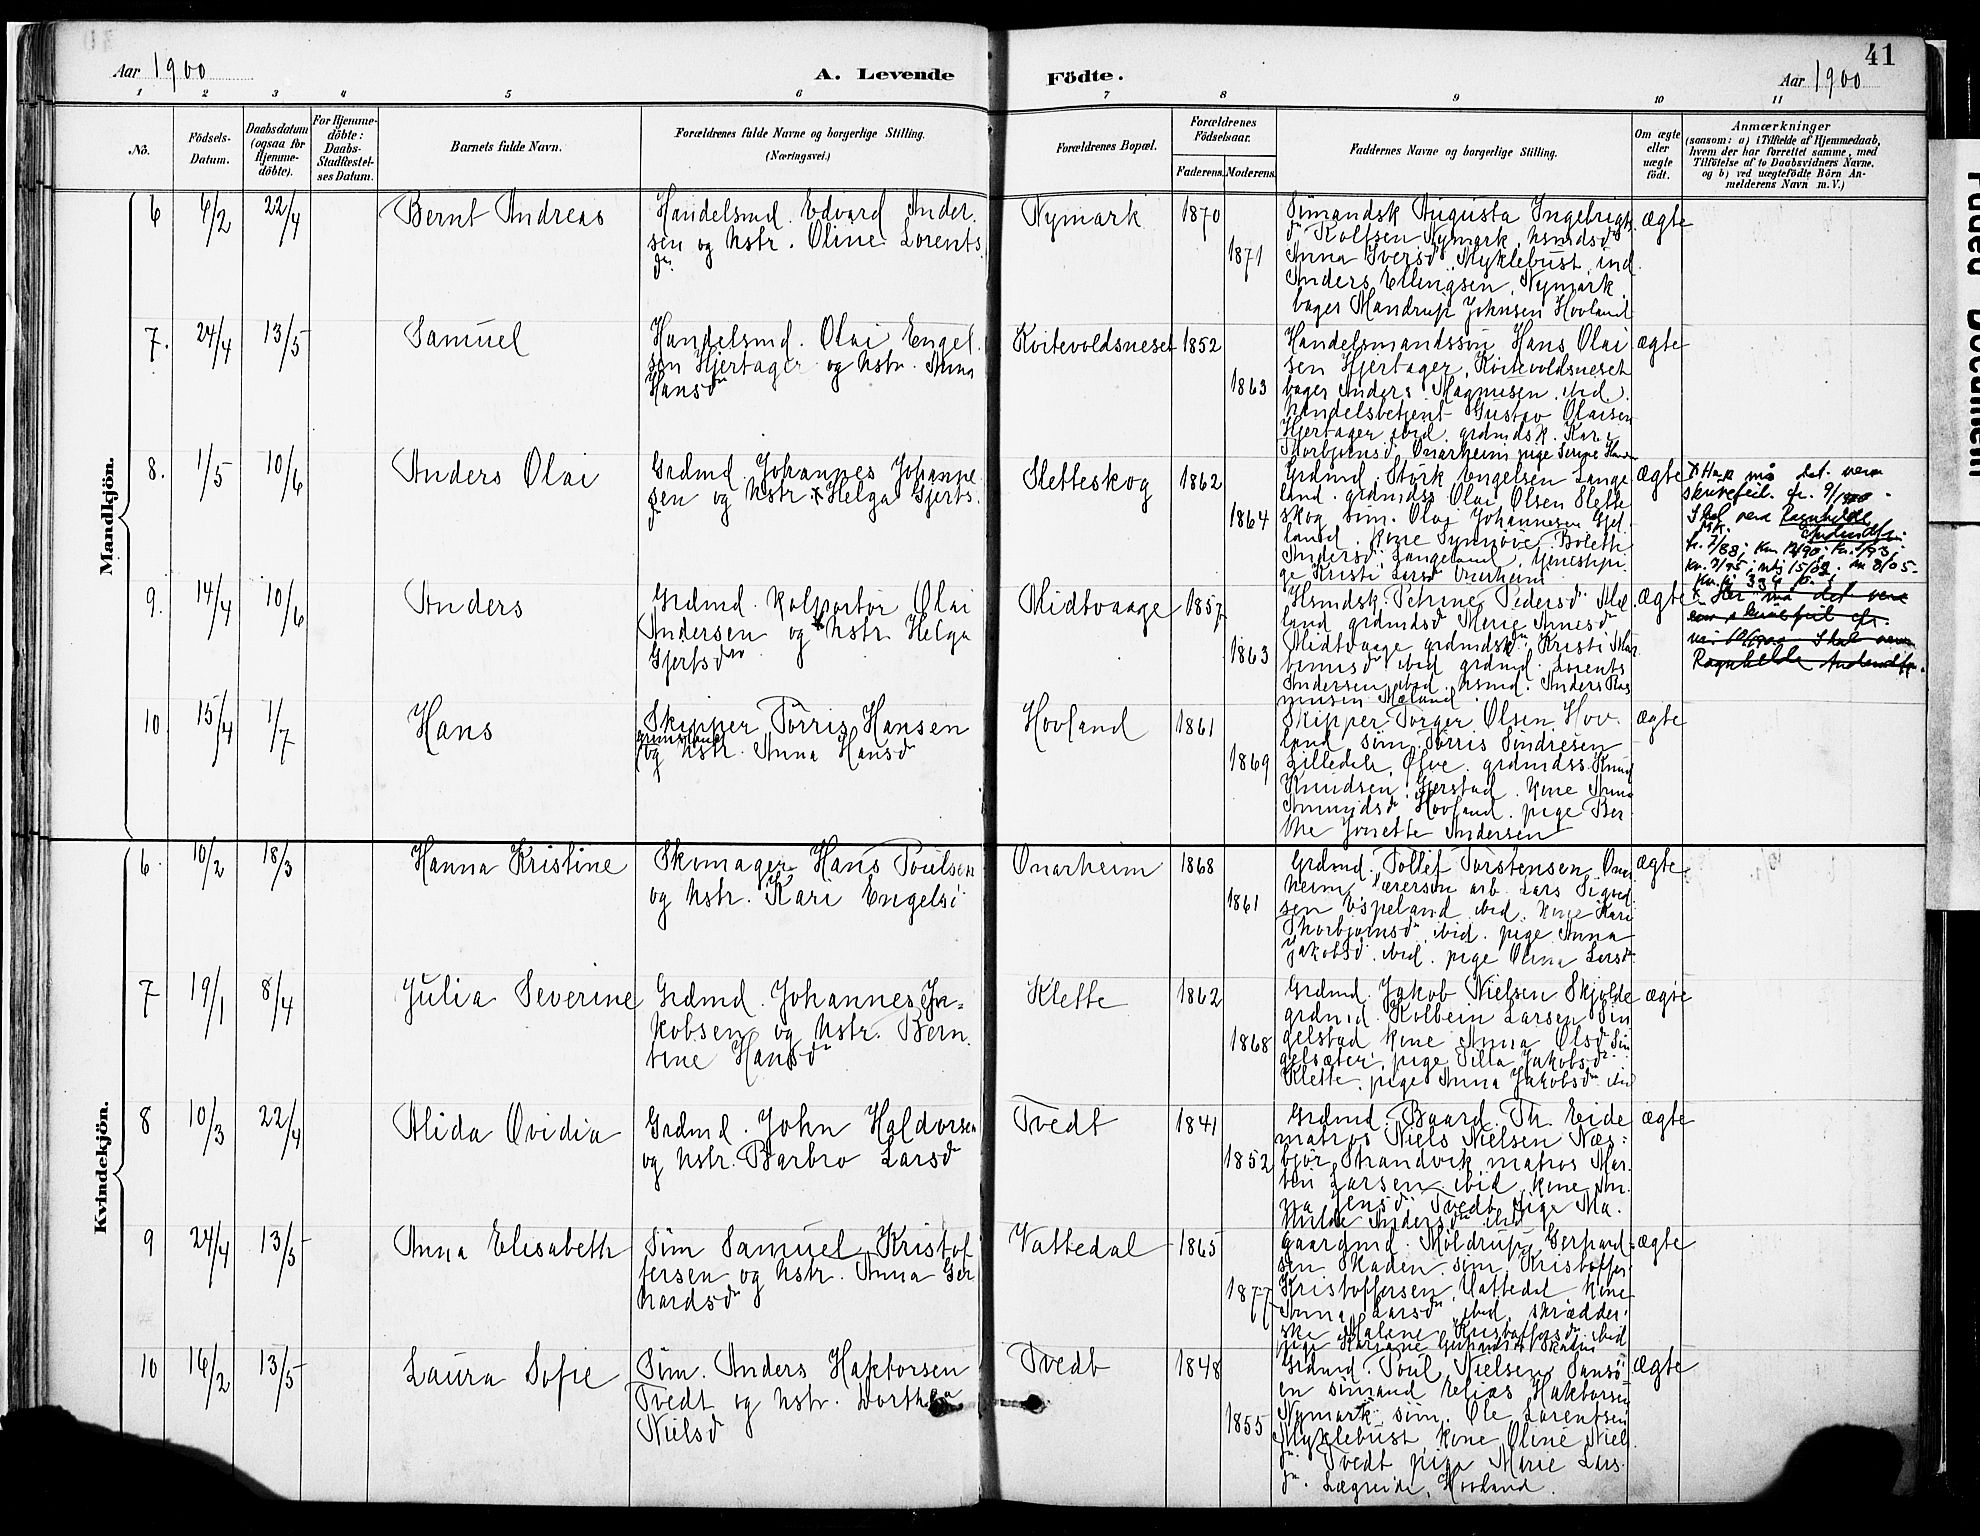 Aar 1900
A. Levende Födte.
41
Aar 1900
1 2 3 4 5 6 7 8 9 10 11
No.
Födsels-Datum.
Daabsdatum (ogsaa for Hjemme-döbte).
For Hjemme-döbte: Daabs-Stadfæstel-ses Datum.
Barnets fulde Navn.
Forældrenes fulde Navne og borgerlige Stilling.
(Næringsvei.)
Forældrenes Bopæl.
Forældrenes Födselsaar.
Faderens. Moderens.
Faddernes Navne og borgerlige Stilling.
Om ægte eller uægte födt.
Anmærkninger
(saasom: a) i Tilfælde af Hjemmedaab,
hvem der har forrettet samme, med
Tilföielse af to Daabsvidners Navne,
og b) ved uægtefödte Börn An-
melderens Navn m. V.)
Mandkjön.
6 6/2 22/4 Bernt Andreas
Handelsmd. Edvard Ander.
sen og hstr. Oline Lorents
dr
Nymark 1870 1871
Sömandsk Augusta Ingebrigts
dr Rolfsen Nymark, hsmdsdr
Anna Iversdr Myklebust, ind
Anders Ellingsen, Nymark,
bager Mandrup Johnsen Hovland
ægte
7. 24/4 13/5 Samuel
Handelsmd. Olai Engel.
sen Hjertager og hstr. Anna
Hansdr
Kvitevoldsneset 1852 1863
Handelsmandssön Hans Olai
sen Hjertager, Kvitevoldsneset
bager Anders Magnusen ibid.
handelsbetjent Gustav Olaisen
Hjertager ibid. grdmdsk. Kari
Torbjörnsdr Onarheim pige
ægte
8. 1/5 10/6 Anders Olai
Grdmd. Johannes Johanne
sen og hstr. x Helga Gjerts.
dr
Sletteskog 1862 1864
Grdmd. Störk Engelsen Lange
land. grdmdss Olai Olsen Slette
skog söm. Olai Johannesen Gjel
land, kone Synnöve Bolette
Andersdr Langeland, tjenestepi
ge Kristi Larsdr Onarheim
ægte
x Her må det vera
skrivefeil. cfr. 9/1900.
Skal vera Ragnhilde
Andersdtr.
9. 14/4 10/6 Anders
Grdmd. kolportör Olai
Andersen og x hstr Helga
Gjertsdr
Midtvaage 1857 1863
Hsmdsk Petrine Pedersdr Mæ
land grdmdsd Marie Arnesdr
Midtvaage grdmdsk Kristi
ibid grdmd. Lorents
Andersen ibid. hsmd. Anders Ras
musen Mæland
ægte
x Her må det vera
ein skrivefeil cfr.
Skal vera
Ragnhilde Andersdtr.
10. 15/4 1/7 Hans
Skipper Törris Hansen
og hstr. Anna Hansdr
Hovland 1861 1869
Skipper Torger Olsen Hov.
land söm. Törris Sindresen
Lilledale, Ölve. grdmdss. Knud
Knudsen Gjerstad. kone Anna
Amundsdr Hovland. pige Ber
the Jonette Andersen
ægte
Kvindekjön.
6. 10/2 18/3 Hanna Kristine
Skomager Hans Poulsen
og hstr. Kari Engelsd
Onarheim 1868 1861
Grdmd. Tollef Torstensen Onar
heim, arb. Lars Sigurd
sen Espeland ibid. kone Kari
Thorbjörnsdr ibid. pige Anna
Jakobsd. ibid. pige Olina Larsdr
ægte
7 19/1 8/4 Julia Severine
Grdmd. Johannes Ja-
kobsen og hstr. Bern
tine Hansdr
Klette 1862 1868
Grdmd. Jakob Nielsen Skjolde
grdmd. Kolbein Larsen Sin
gelstad kone Anna Olsdr Sin
gelsæter, pige Silla Jakobsdr
Klette, pige Anna Jakobsdr ibid
ægte
8 10/3 22/4 Alida Ovidia
Grdmd. John Haldorsen
og hstr. Barbro Larsdr
Tvedt 1841 1852
Grdmd. Baard Th. Eide
matros Niels Nielsen Næs-
björ Strandvik, matros Mar.
tin Larsen ibid. kone An.
na Jensdr Tvedt. pige Ma.
thilde Andersdr ibid
ægte
9 24/4 13/5 Anna Elisabeth
Söm Samuel Kristof
fersen og hstr. Anna Ger
hardsdr
Vattedal 1865 1877
gaardmd. Möldrup Gerhard
sen Skaden. söm. Kristoffer
Kristoffersen, Vattedal kone
Anna Larsdr ibid, skrædder-
ske Malene Kristoffersdr ibid
pige Karjane Gerhardsdr Skaden
ægte
10 16/2 13/5 Laura Sofie
Söm. Anders Haktorsen
Tvedt og hstr. Dorthea
Nielsdr
Tvedt 1848 1855
Grdmd. Poul Nielsen Samsö
en sömand Elias Haktorsen
Nymark. söm. Ole Lorentsen
Myklebust, kone Oline Niels
dr. Tvedt pige Marie Lars
dr. Lægreide, Hovland.
ægte